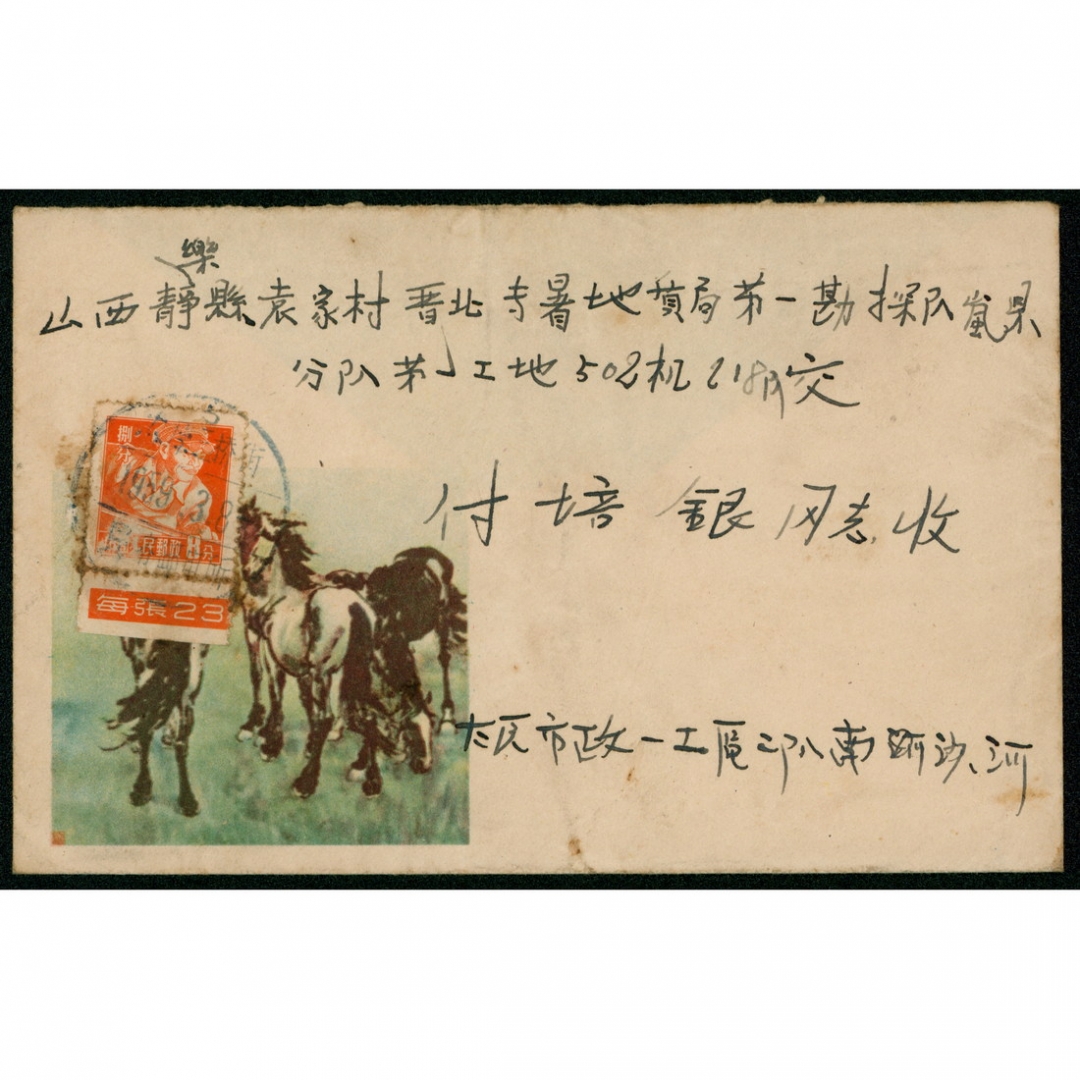 樂
山西靜縣袁家村晋北专署地質局第一勘探队嵐県
分队第一工地502机218队交
付培銀同志收
捌分
8分
1959 3.8
每張23
太原市政一工區二队南沙河